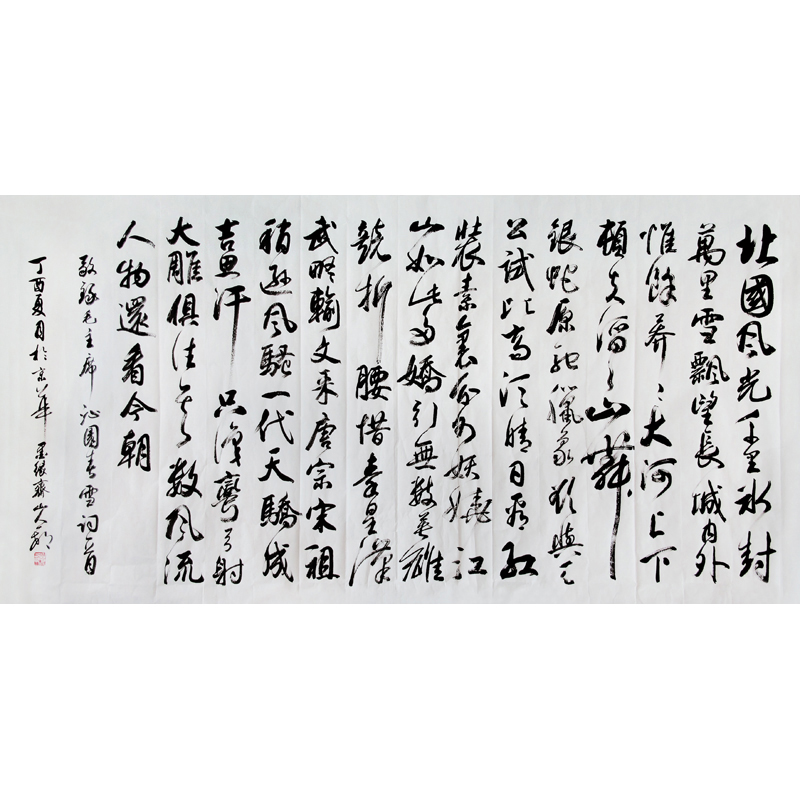 北國风光千里冰封
萬里雪飄望長城内外
惟餘莽々大河上下
頓失滔々山舞
銀蛇原馳蠟象欲與天
公試比高須晴日看紅
裝素裹分外妖嬈江
山如此多嬌引無數英雄
競折腰惜秦皇漢
武略輸文采唐宗宋祖
稍遜风騷一代天驕成
吉思汗只識彎弓射
大雕俱往矣數风流
人物還看今朝
敬錄毛主席沁園春雪詞一首
丁酉夏月於京華墨緣齋